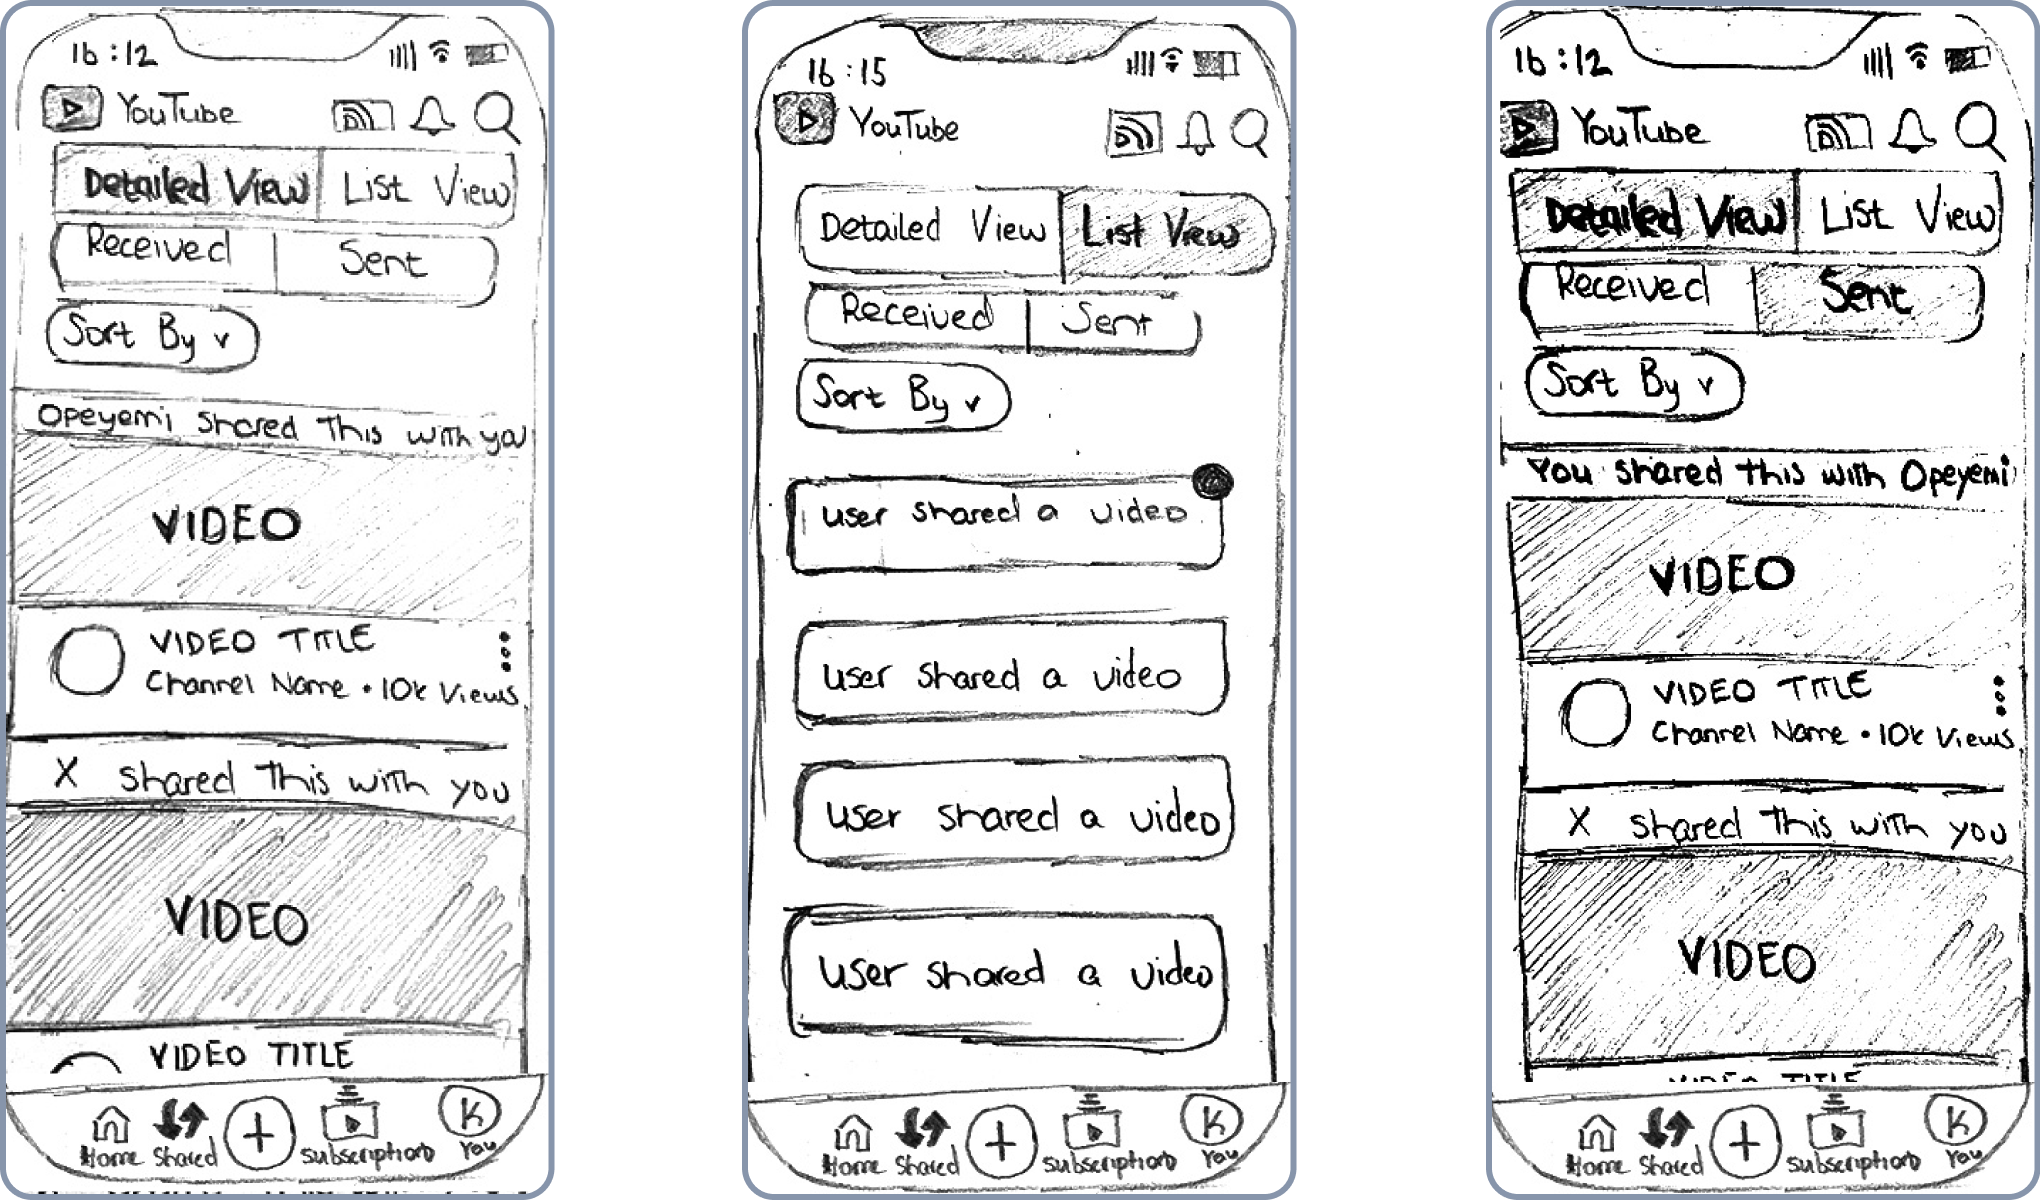 16:12
YouTube
Detailed View List View
Received Sent
Sort By v
Opeyemi shared this with you
VIDEO
VIDEO TITLE
Channel Name • 10k Views
X shared this with you
VIDEO
VIDEO TITLE
Home Shared + Subscriptions K You
16:15
YouTube
Detailed View List View
Received Sent
Sort By v
user shared a video
user shared a video
user shared a video
user shared a video
Home Shared + Subscriptions K You
16:12
YouTube
Detailed View List View
Received Sent
Sort By v
You shared this with Opeyemi
VIDEO
VIDEO TITLE
Channel Name • 10k Views
X shared this with you
VIDEO
VIDEO TITLE
Home Shared + Subscriptions K You